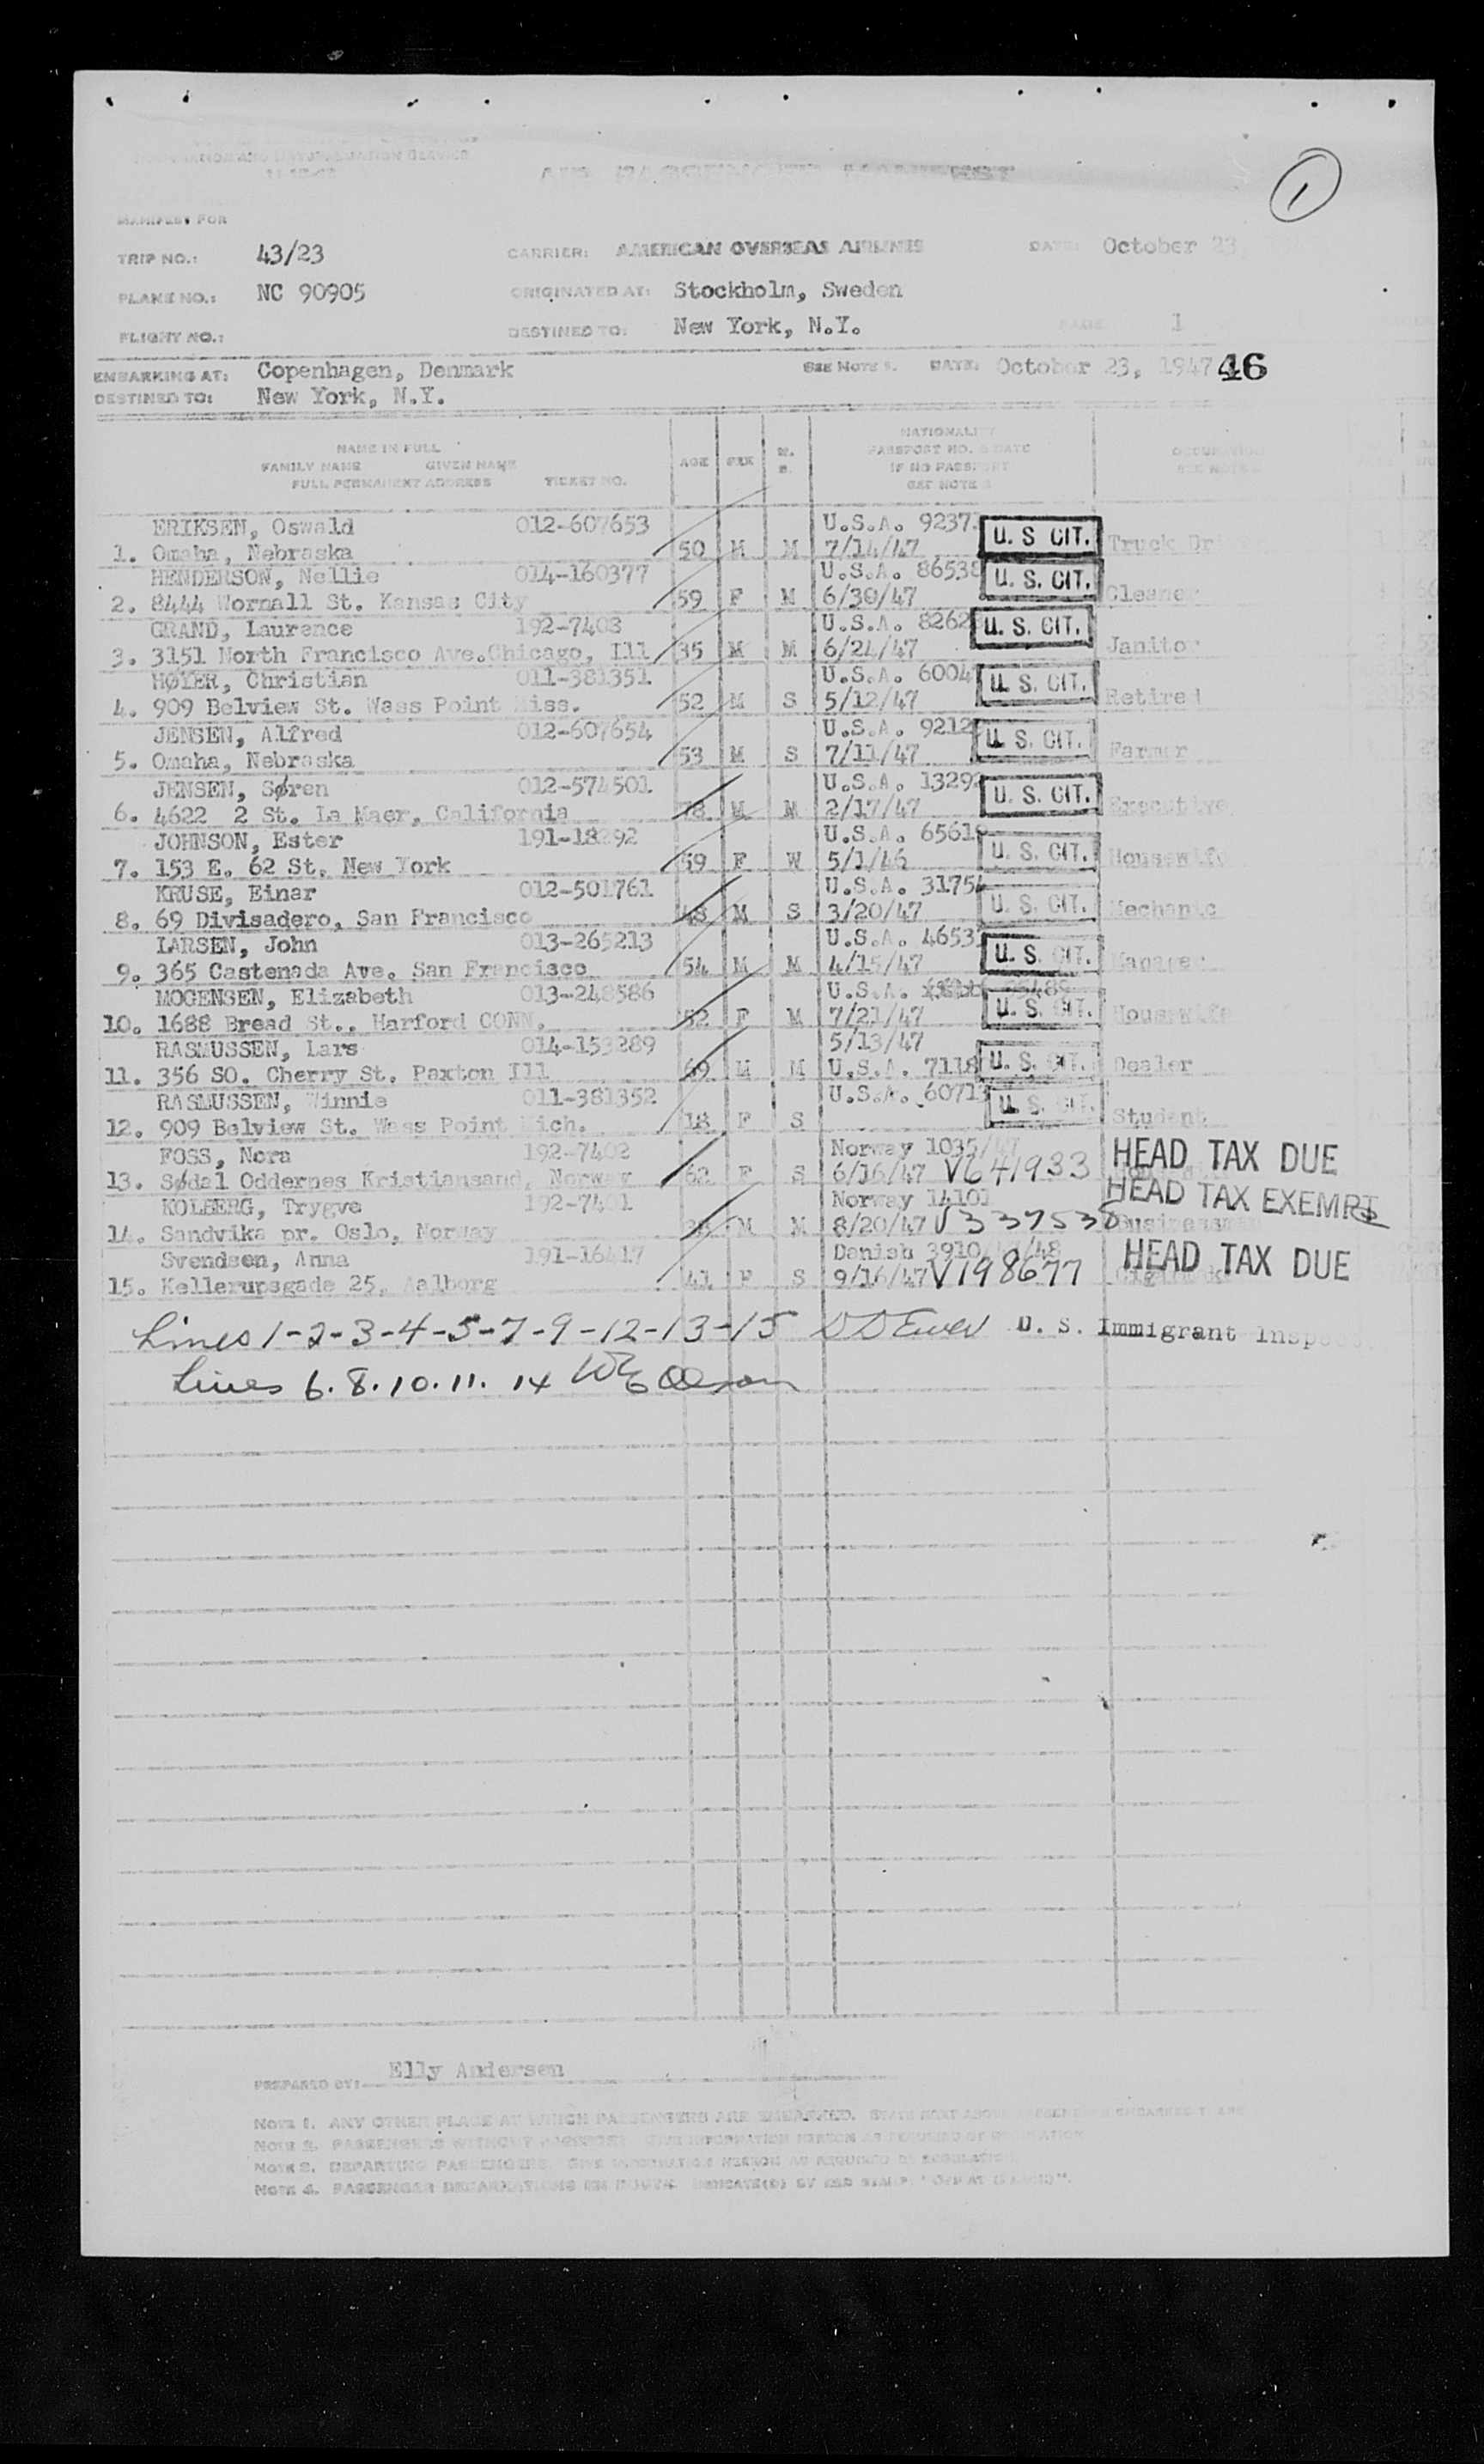 1
AIR PASSENGER MANIFEST
MANIFEST FOR
TRIP NO.: 43/23 CARRIER: AMERICAN OVERSEAS AIRLINES DATE: October 23,
PLANE NO.: NC 90905 ORIGINATED AT: Stockholm, Sweden
FLIGHT NO.: DESTINED TO: New York, N.Y. PAGE 1
EMBARKING AT: Copenhagen, Denmark SEE NOTE 1. DATE: October 23, 1947 46
DESTINED TO: New York, N.Y.
NAME IN FULL NATIONALITY
FAMILY NAME GIVEN NAME AGE SEX M. S. PASSPORT NO. & DATE OCCUPATION
FULL PERMANENT ADDRESS TICKET NO. IF NO PASSPORT SEE NOTE
SEE NOTE
ERIKSEN, Oswald 012-607653 U.S.A. 9237 U. S CIT.
1. Omaha, Nebraska 50 M M 7/14/47 Truck
HENDERSON, Nellie 014-160377 U.S.A. 8653 U. S. CIT.
2. 8444 Wornall St. Kansas City 59 F M 6/30/47 Cleaner
GRAND, Laurence 192-7403 U.S.A. 8262 U. S. CIT.
3. 3151 North Francisco Ave.Chicago, Ill 35 M M 6/24/47 Janitor
HØYER, Christian 011-381351 U.S.A. 6004 U. S. CIT.
4. 909 Belview St. Wass Point Miss. 52 M S 5/12/47 Retired
JENSEN, Alfred 012-607654 U.S.A. 9212 U. S. CIT.
5. Omaha, Nebraska 53 M S 7/11/47 Farmer
JENSEN, Søren 012-574501 U.S.A. 1329 U. S. CIT.
6. 4622 2 St. La Maer, California 78 M M 2/17/47 Executive
JOHNSON, Ester 191-18292 U.S.A. 6561 U. S. CIT.
7. 153 E. 62 St. New York 59 F W 5/1/46 Housewife
KRUSE, Einar 012-501761 U.S.A. 3175 U. S. CIT.
8. 69 Divisadero, San Francisco 48 M S 3/20/47 Mechanic
LARSEN, John 013-265213 U.S.A. 4653 U. S. CIT.
9. 365 Castenada Ave. San Francisco 54 M M 4/15/47 Manager
MOGENSEN, Elizabeth 013-248586 U.S.A. U. S. CIT.
10. 1688 Bread St., Harford CONN. 52 F M 7/21/47 Housewife
RASMUSSEN, Lars 014-153289 5/13/47
11. 356 SO. Cherry St. Paxton Ill 69 M M U.S.A. 7118 U. S. CIT. Dealer
RASMUSSEN, Winnie 011-381352 U.S.A. 6071 U. S. CIT.
12. 909 Belview St. Wass Point Mich. 18 F S Student
FOSS, Nora 192-7402 Norway 1035/47 HEAD TAX DUE
13. Sødal Oddernes Kristiansand, Norway 62 F S 6/16/47 V641933
KOLBERG, Trygve 192-7401 Norway 14101 HEAD TAX EXEMPT
14. Sandvika pr. Oslo, Norway 38 M M 8/20/47 V337538 Businessman
Svendsen, Anna 191-16417 Danish 3910 /48 HEAD TAX DUE
15. Kellerupsgade 25, Aalborg 41 F S 9/16/47 V198677
Lines 1-2-3-4-5-7-9-12-13-15 DD Ewer U. S. Immigrant Inspector
Lines 6. 8. 10. 11. 14
PREPARED BY: Elly Andersen
NOTE 1. ANY OTHER PLACE AT WHICH PASSENGERS ARE EMBARKED.
NOTE 2. PASSENGERS WITHOUT PASSPORT GIVE INFORMATION HEREON AS REQUIRED BY REGULATION
NOTE 3. DEPARTING PASSENGERS. GIVE INFORMATION HEREON AS REQUIRED BY REGULATION
NOTE 4. PASSENGER